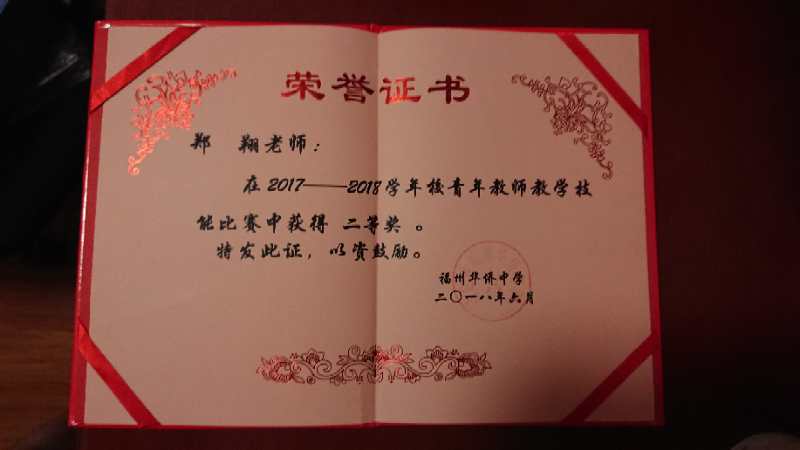 荣誉证书
郑 翔老师：
在2017——2018学年校青年教师教学技
能比赛中获得 二等奖 。
特发此证，以资鼓励。
福州华侨中学
二〇一八年六月